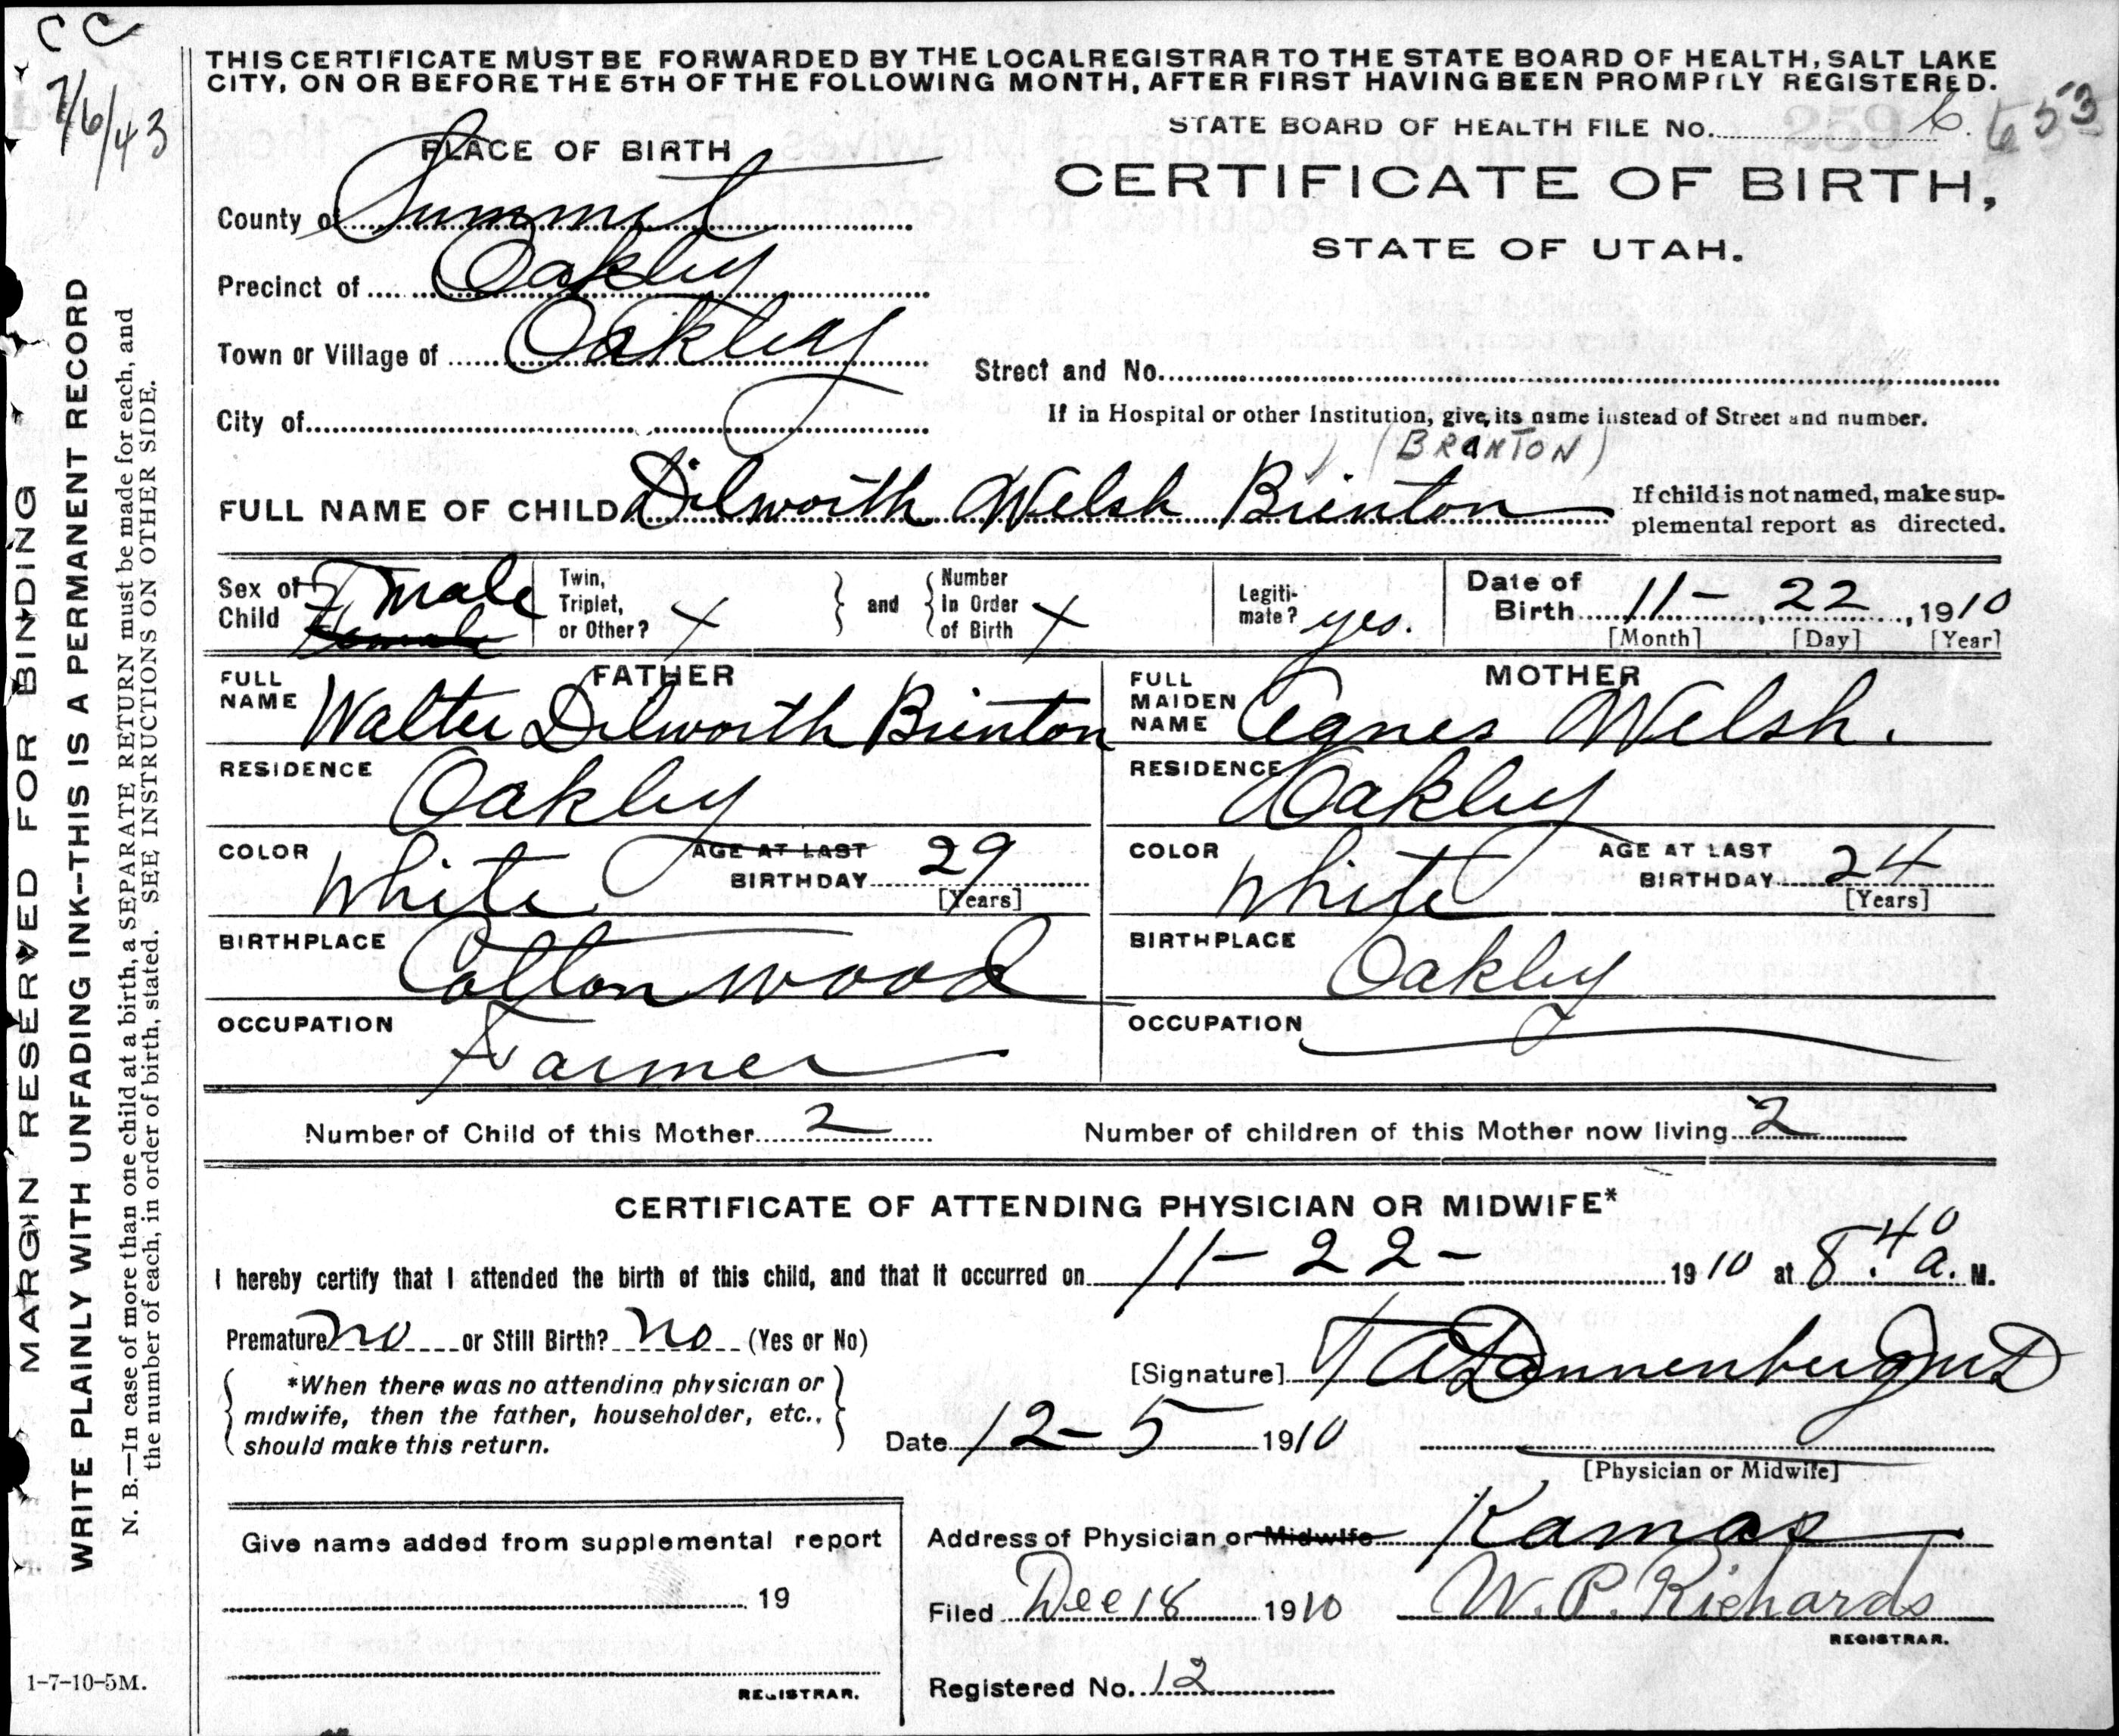 CC
7/6/43
THIS CERTIFICATE MUST BE FORWARDED BY THE LOCAL REGISTRAR TO THE STATE BOARD OF HEALTH, SALT LAKE
CITY, ON OR BEFORE THE 5TH OF THE FOLLOWING MONTH, AFTER FIRST HAVING BEEN PROMPTLY REGISTERED.
STATE BOARD OF HEALTH FILE No. 6. 653
PLACE OF BIRTH
CERTIFICATE OF BIRTH,
STATE OF UTAH.
County of Summit
Precinct of Oakley
Town or Village of Oakley
Street and No.
City of
If in Hospital or other Institution, give its name instead of Street and number.
(BRANTON)
FULL NAME OF CHILD Dilworth Welsh Brinton
If child is not named, make sup-
plemental report as directed.
Sex of Child male Female
Twin, Triplet, or Other? X
and
Number In Order of Birth X
Legiti-mate? yes.
Date of Birth 11- 22, 1910
[Month] [Day] [Year]
FATHER
FULL NAME Walter Dilworth Brinton
MOTHER
FULL MAIDEN NAME Agnes Welsh.
RESIDENCE Oakley
RESIDENCE Oakley
COLOR White AGE AT LAST BIRTHDAY 29 [Years]
COLOR White AGE AT LAST BIRTHDAY 24 [Years]
BIRTHPLACE Cottonwood
BIRTHPLACE Oakley
OCCUPATION Farmer
OCCUPATION
Number of Child of this Mother 2
Number of children of this Mother now living 2
CERTIFICATE OF ATTENDING PHYSICIAN OR MIDWIFE*
I hereby certify that I attended the birth of this child, and that it occurred on 11- 22- 1910 at 8:40 a. M.
Premature no or Still Birth? no (Yes or No)
[Signature] T A Dannenberg M D
*When there was no attending physician or
midwife, then the father, householder, etc.,
should make this return.
Date 12-5 1910
[Physician or Midwife]
Address of Physician or Midwife Kamas
Give name added from supplemental report
19
Filed Dec 18 1910 W. P. Richards
REGISTRAR.
REGISTRAR.
Registered No. 12
MARGIN RESERVED FOR BINDING
WRITE PLAINLY WITH UNFADING INK--THIS IS A PERMANENT RECORD
N. B.—In case of more than one child at a birth, a SEPARATE RETURN must be made for each, and
the number of each, in order of birth, stated. SEE INSTRUCTIONS ON OTHER SIDE.
1-7-10-5M.